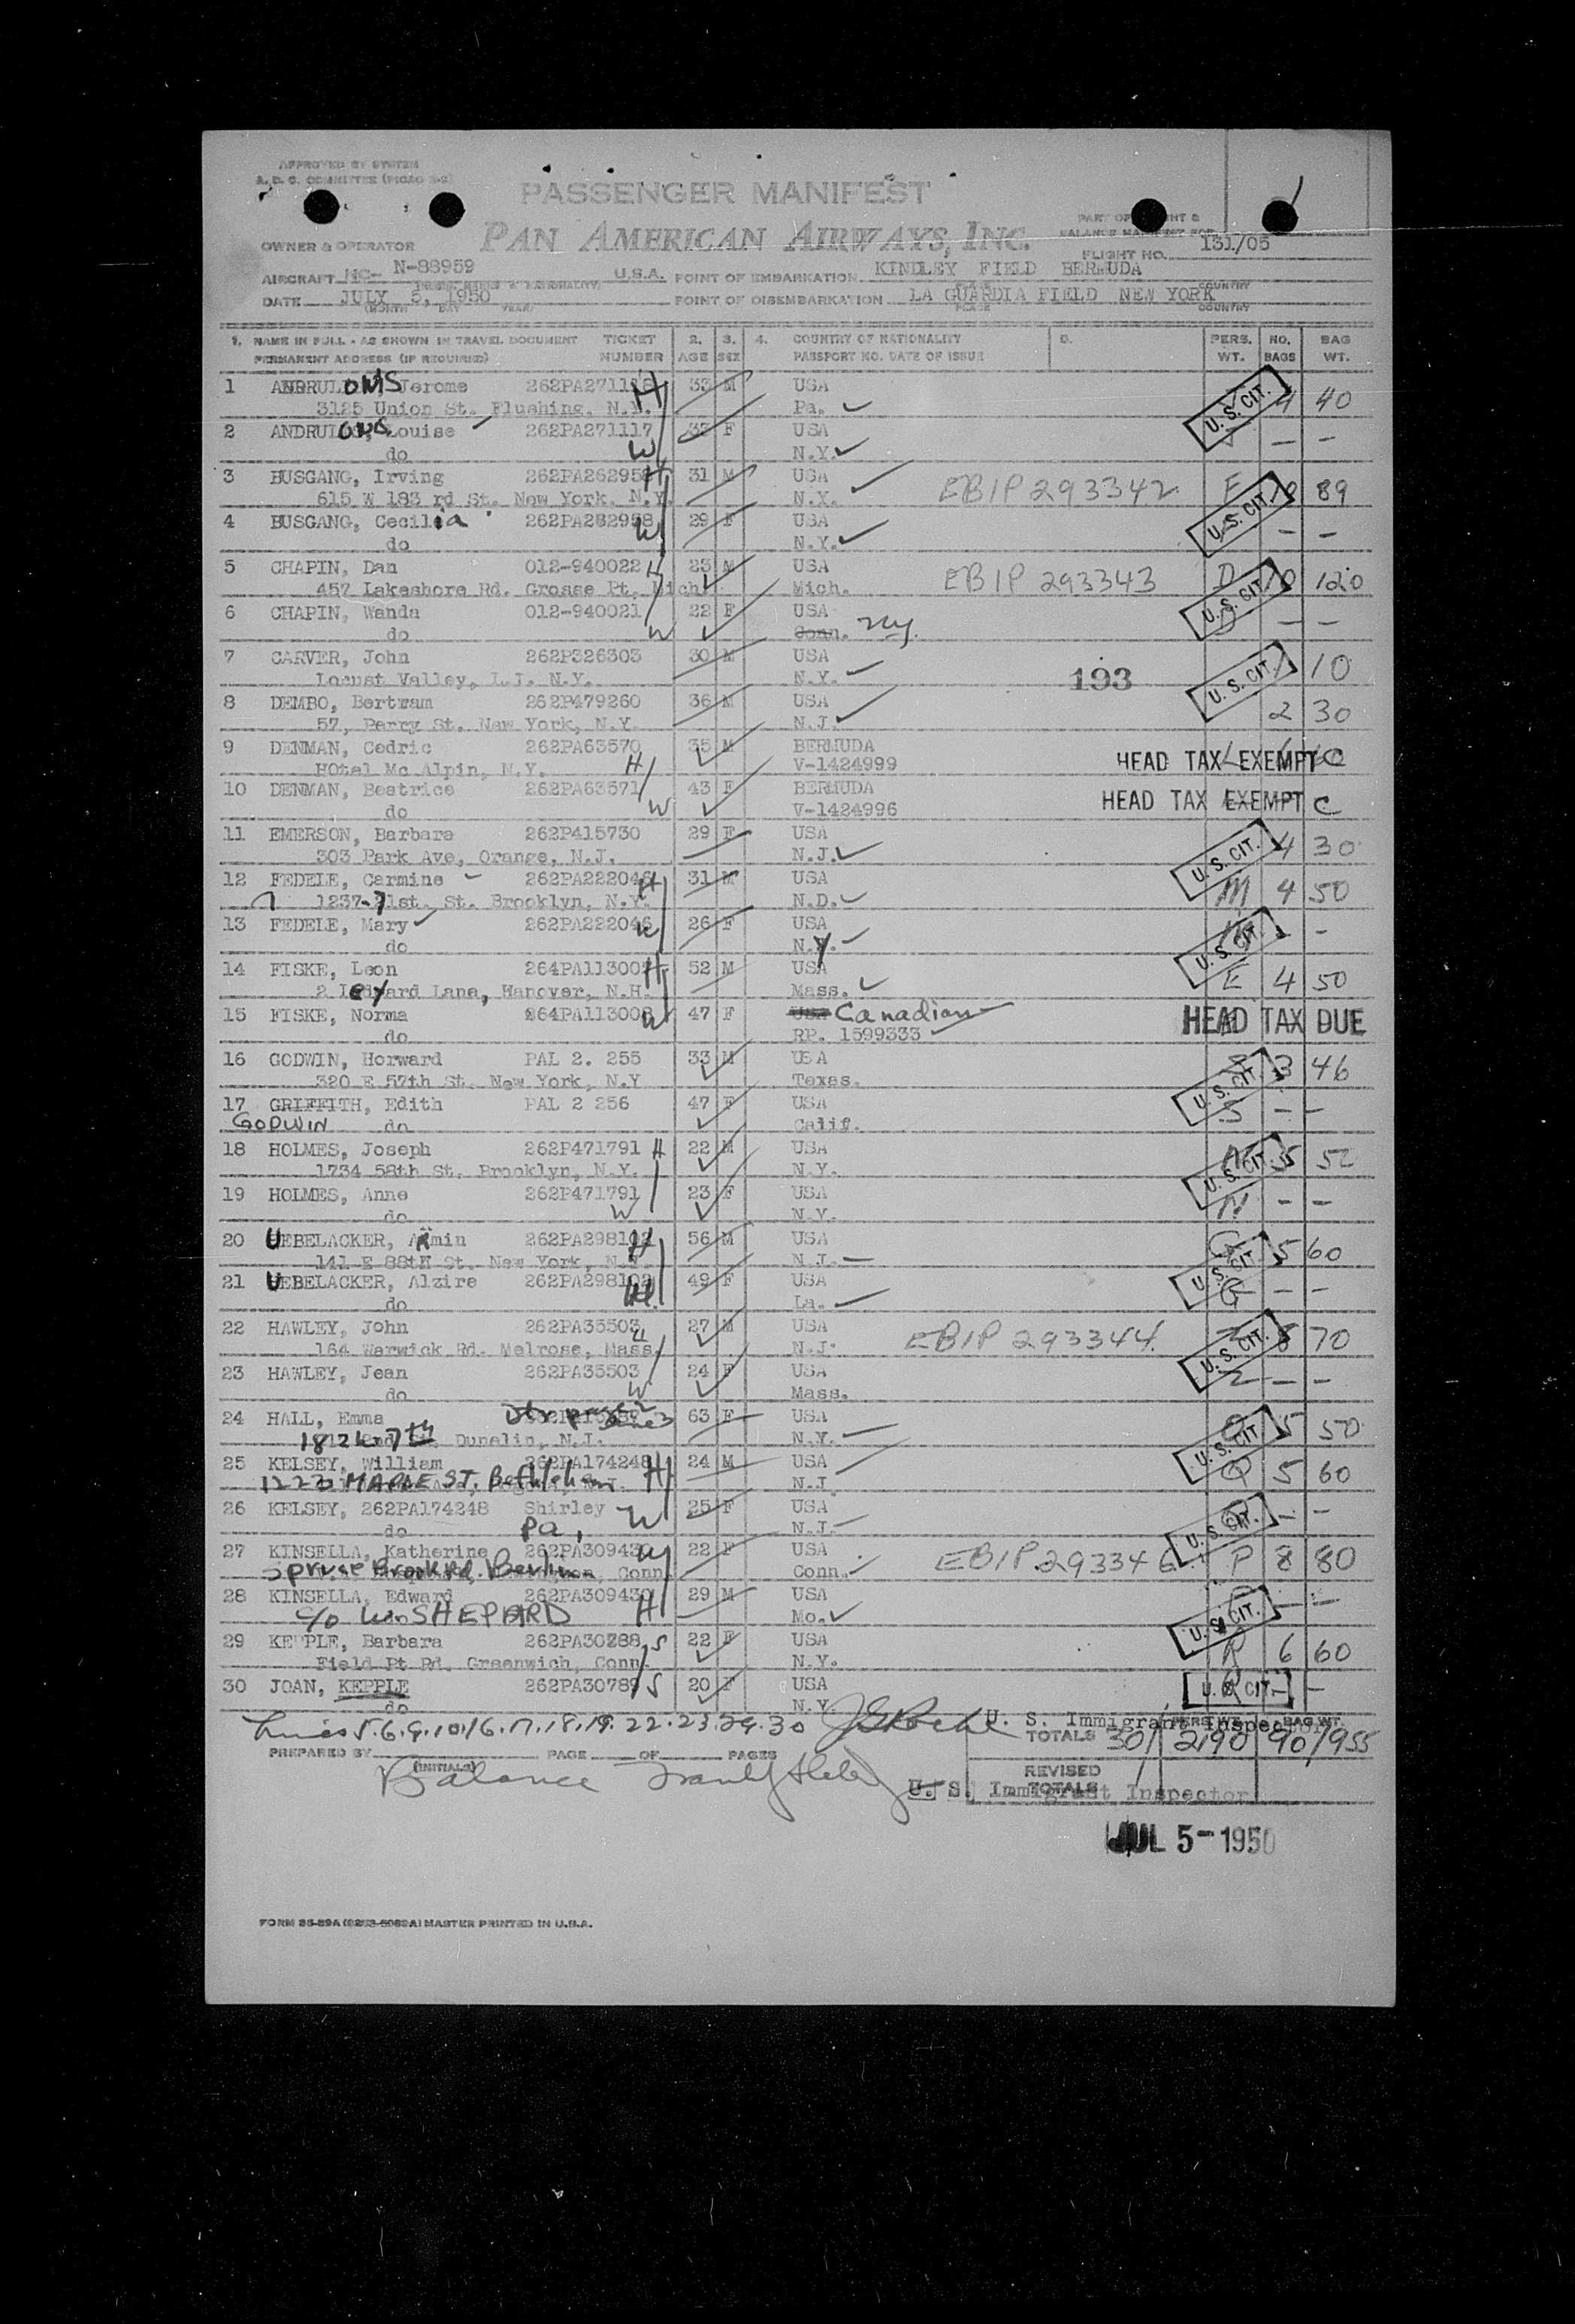 APPROVED BY SYSTEM
A. D. C. COMMITTEE (PICAO
PASSENGER MANIFEST
PAN AMERICAN AIRWAYS, INC.
OWNER & OPERATOR
FLIGHT NO. 131/05
AIRCRAFT NC- N-88959 U.S.A. POINT OF EMBARKATION KINDLEY FIELD BERMUDA
DATE JULY 5, 1950 POINT OF DISEMBARKATION LA GUARDIA FIELD NEW YORK
(MONTH DAY YEAR) PLACE COUNTRY
1. NAME IN FULL - AS SHOWN IN TRAVEL DOCUMENT TICKET 2. 3. 4. COUNTRY OF NATIONALITY PERS. NO. BAG
PERMANENT ADDRESS (IF REQUIRED) NUMBER AGE SEX PASSPORT NO. DATE OF ISSUE WT. BAGS WT.
1 Jerome H 33 M USA U.S. CIT. 4 40
3125 Union St. Flushing. N.Y. Pa.
2 Louise 262PA271117 F USA — —
do W N.Y.
3 BUSGANG, Irving H 31 M USA EBIP 293342 89
615 W 183 rd St. New York. N.Y. N.Y. U.S. CIT.
4 BUSGANG, Cecilia 262PA282958 29 F USA — —
do W N.Y.
5 CHAPIN, Dan 012-940022 H 23 M USA EBIP 293343 D 10 120
457 Lakeshore Rd. Grosse Pt, Mich. Mich. U.S. CIT.
6 CHAPIN, Wanda 012-940021 22 F USA — —
do W Conn. NY.
7 CARVER, John 262P326303 30 M USA 1 10
Locust Valley, L.I. N.Y. N.Y. 193 U.S. CIT.
8 DEMBO, Bertram 262P479260 36 M USA 2 30
57, Perry St. New York, N.Y. N.J.
9 DENMAN, Cedric 262PA63570 35 M BERMUDA HEAD TAX EXEMPT C
HOtel Mc Alpin, N.Y. H V-1424999
10 DENMAN, Beatrice 262PA63571 43 F BERMUDA HEAD TAX EXEMPT C
do W V-1424996
11 EMERSON, Barbara 262P415730 29 F USA U.S. CIT. 4 30
303 Park Ave, Orange, N.J. N.J.
12 FEDELE, Carmine 262PA222046 H 31 M USA M 4 50
1237-71st. St. Brooklyn, N.Y. N.D.
13 FEDELE, Mary 262PA222046 W 26 F USA U.S. CIT. -
do N.Y.
14 FISKE, Leon H 52 M USA E 4 50
Lane, Hanover, N.H. Mass.
15 FISKE, Norma W 47 F USA Canadian HEAD TAX DUE
do RP. 1599333
16 GODWIN, Horward PAL 2. 255 33 M USA S 3 46
320 E 57th St. New York, N.Y Texas. U.S. CIT.
17 GRIFFITH, Edith PAL 2 256 47 F USA S — —
GODWIN do Calif.
18 HOLMES, Joseph 262P471791 H 22 M USA N 5
1734 58th St. Brooklyn, N.Y. N.Y. U.S. CIT.
19 HOLMES, Anne 262P471791 23 F USA N — —
do W N.Y.
20 UEBELACKER, Armin H 56 M USA G 5 60
141 E 88th St. New York, N.Y. N.J. U.S. CIT.
21 UEBELACKER, Alzire 49 F USA G — —
do La.
22 HAWLEY, John 262PA35503 H 27 M USA EBIP 293344 70
164 Warwick Rd. Melrose, Mass. N.J. U.S. CIT.
23 HAWLEY, Jean 262PA35503 24 F USA — —
do W Mass.
24 HALL, Emma 63 F USA O 5 50
Dunelin, N.J. N.Y. U.S. CIT.
25 KELSEY, William 262PA174248 H 24 M USA Q 5 60
MAPLE ST. Bethlehem N.J.
26 KELSEY, 262PA174248 Shirley W 25 F USA — —
do Pa, N.J. U.S. CIT.
27 KINSELLA, Katherine 262PA309430 W 22 F USA EBIP 293346 P 8 80
Spruce Brook Rd. Berlin Conn. Conn.
28 KINSELLA, Edward 262PA309430 H 29 M USA — —
c/o SHEPARD Mo. U.S. CIT.
29 KEPPLE, Barbara S 22 F USA R 6 60
Field Pt Rd. Greenwich, Conn. N.Y.
30 JOAN, KEPPLE 262PA30789 S 20 F USA U.S. CIT. —
do N.Y.
Lines 5.6.9.10.16.17.18.19.22.23.29.30 U. S. Immigrant Inspector
TOTALS 30 2190 90 955
PREPARED BY (INITIALS) PAGE OF PAGES
Balance REVISED TOTALS
U. S. Immigrant Inspector
JUL 5-1950
MASTER PRINTED IN U.S.A.